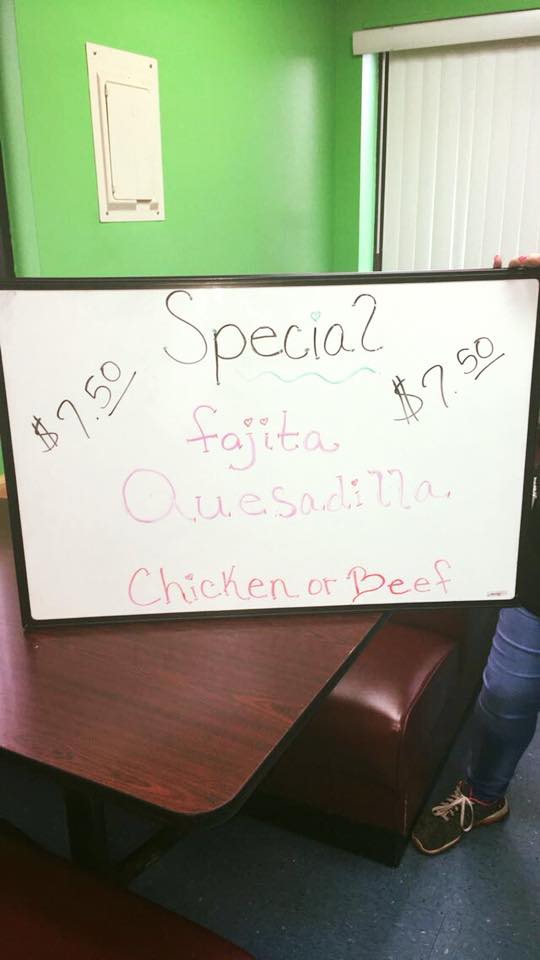 Special
$7.50 $7.50
fajita
Quesadilla
Chicken or Beef